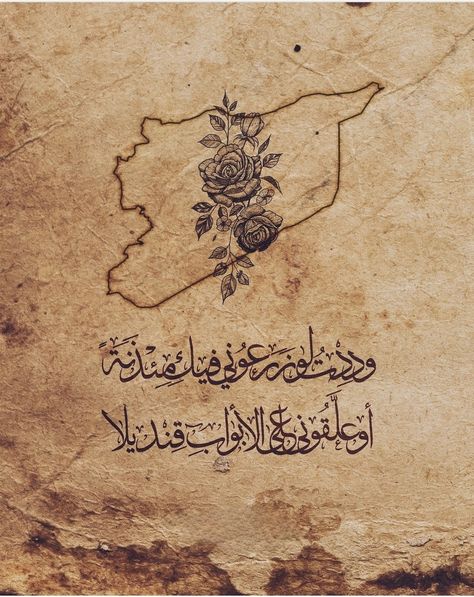 وددتُ لو زرعوني فيكِ مئذنةً
أو علَّقوني على الأبوابِ قنديلا